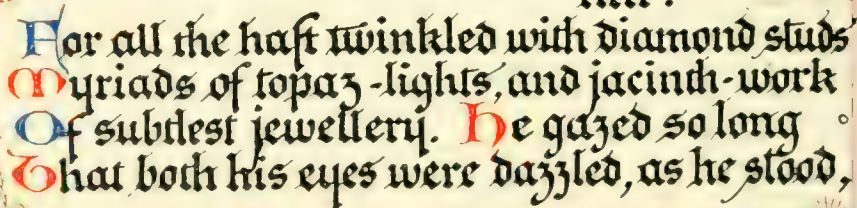 For all the haft twinkled with diamond studs
Myriads of topaz-lights, and jacinth-work
Of subtlest jewellery. He gazed so long
That both his eyes were dazzled, as he stood,